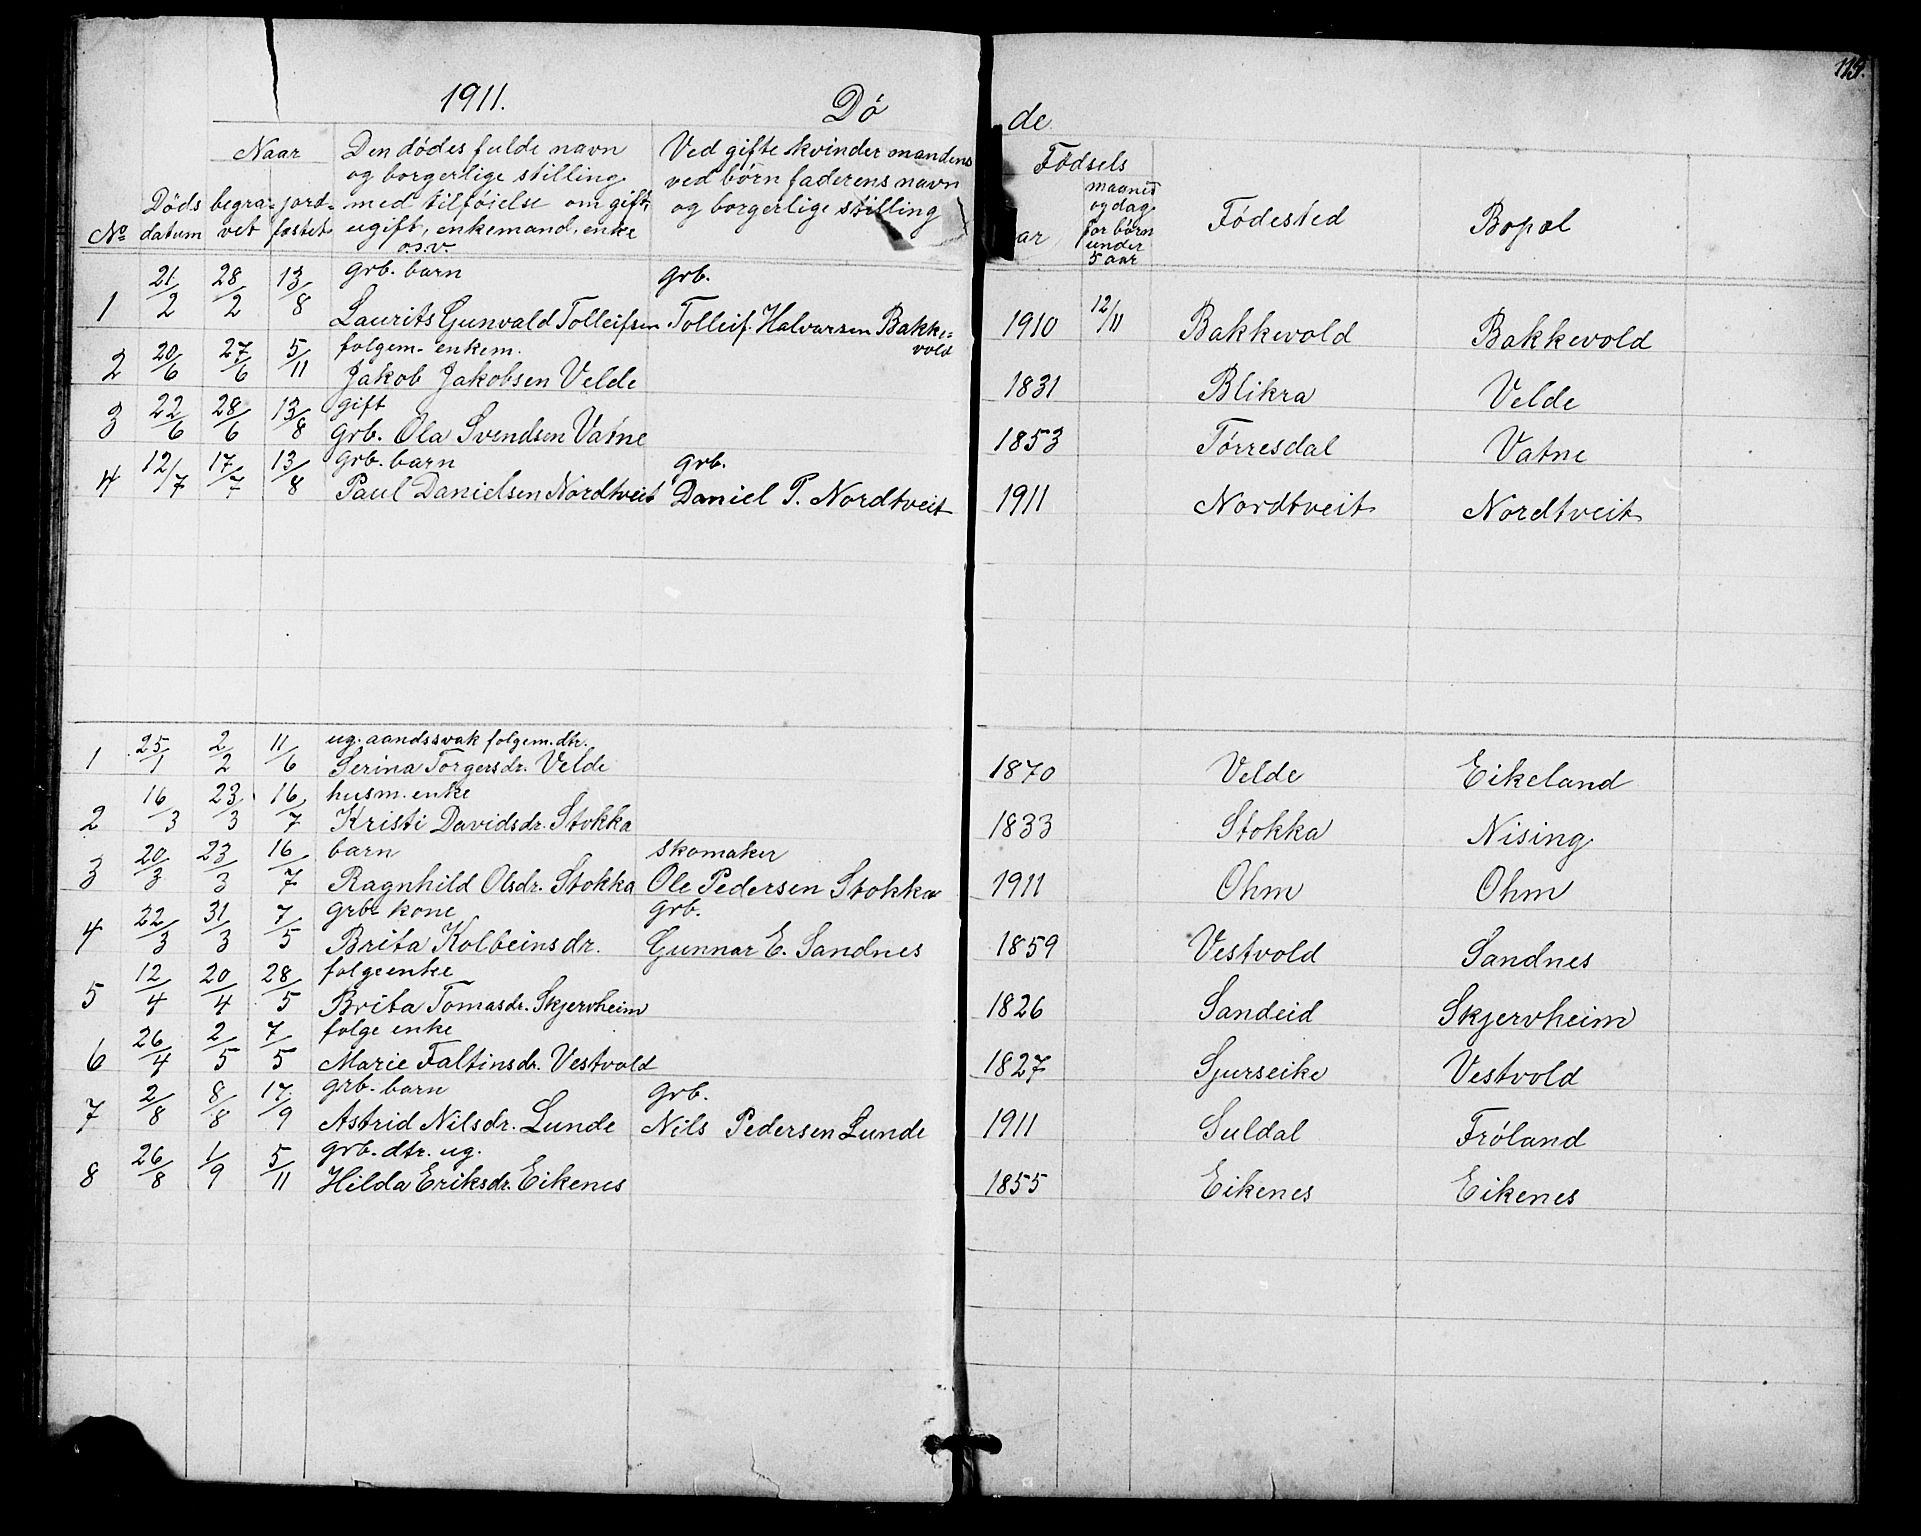 115.
1911. Dø de.
Naar
Den dødes fulde navn og borgerlige stilling med tilføielse om gift, ugift, enkemand, enke os.v.
Ved gifte kvinder mandens ved børn faderens navn og borgerlige stilling
Fødsels
maaned og dag for børn under 5 aar
Fødested
Bopæl
No Døds datum begra- vet jord- fæstet
aar
21/2 28/2 13/8 grb. barn grb.
1 Laurits Gunvald Tolleifsen Tolleif Halvarsen Bakke- vold 1910 12/11 Bakkevold Bakkevold
20/6 27/6 5/11 folgem. enkem.
2 Jakob Jakobsen Velde 1831 Blikra Velde
22/6 28/6 13/8 gift
3 grb. Ola Svendsen Vatne 1853 Tørresdal Vatne
12/7 17/7 13/8 grb. barn grb.
4 Paul Danielsen Nordtveit Daniel P. Nordtveit 1911 Nordtveit Nordtveit
25/1 2/2 11/6 ug. aandssvak folgem. dtr.
1 Serina Torgersdr. Velde 1870 Velde Eikeland
16/3 23/3 16/7 husm. enke
2 Kristi Davidsdr. Stokka 1833 Stokka Nising
20/3 23/3 16/7 barn skomaker
3 Ragnhild Olsdr. Stokka Ole Pedersen Stokka 1911 Ohm Ohm
22/3 31/3 7/5 grb. kone grb.
4 Brita Kolbeinsdr. Gunnar E. Sandnes 1859 Vestvold Sandnes
12/4 20/4 28/5 folgeenke
5 Brita Tomasdr. Skjervheim 1826 Sandeid Skjervheim
26/4 2/5 7/5 folge enke
6 Marie Faltinsdr. Vestvold 1827 Sjurseike Vestvold
2/8 8/8 17/9 grb. barn grb.
7 Astrid Nilsdr. Lunde Nils Pedersen Lunde 1911 Suldal Frøland
26/8 1/9 5/11 grb. dtr. ug.
8 Hilda Eriksdr. Eikenes 1855 Eikenes Eikenes